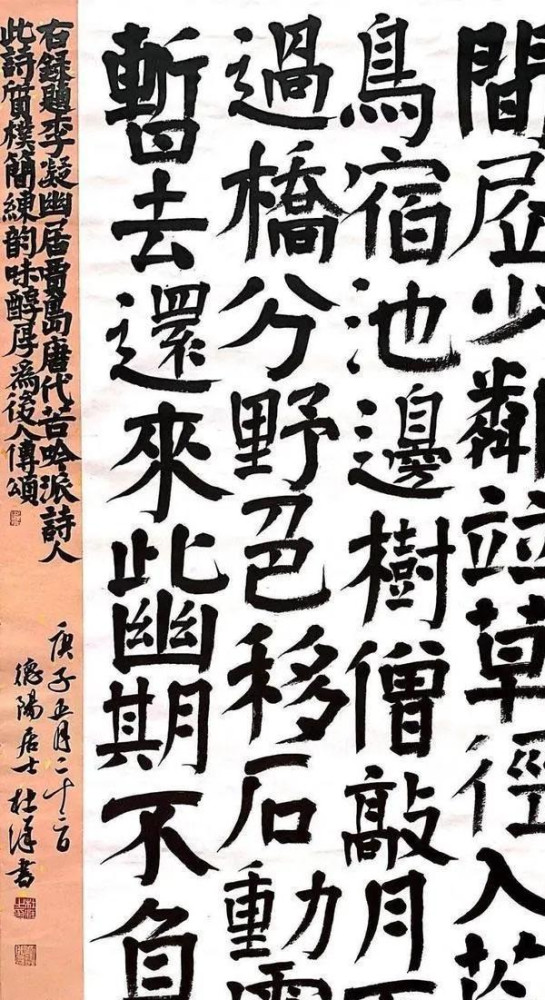 間居少鄰竝草徑入荒
鳥宿池邊樹僧敲月下
過橋分野色移石動雲
暫去還來此幽期不負
右錄題李凝幽居賈島唐代苦吟派詩人
此詩質樸簡練韵味醇厚為後人傳頌
庚子五月二十二日
德陽居士杜洋書